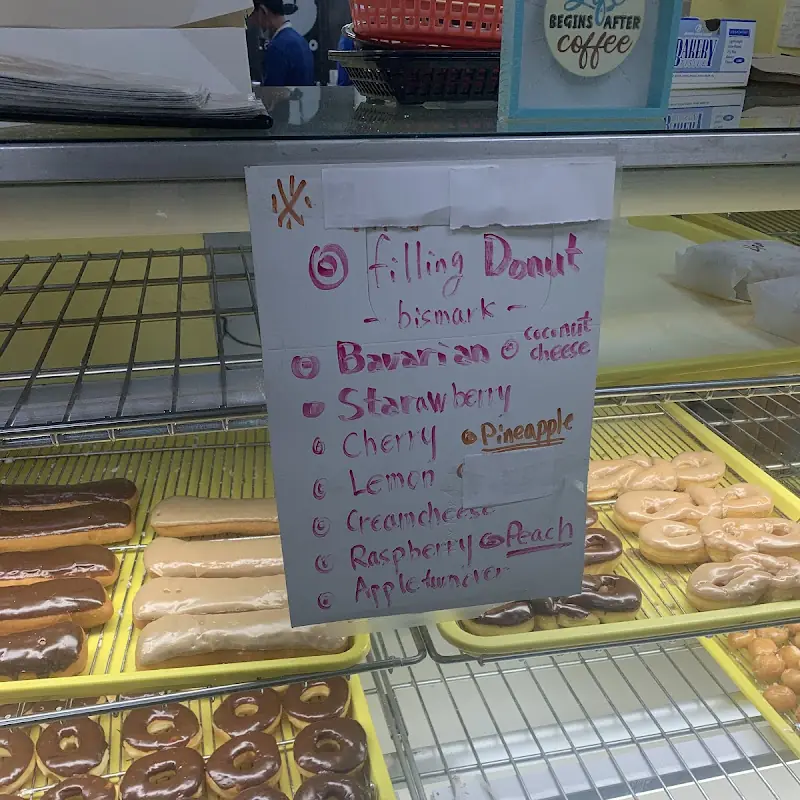 Life
BEGINS AFTER
coffee
BAKERY
filling Donut
- bismark -
Bavarian
coconut
cheese
Starawberry
Cherry
Pineapple
Lemon
Creamcheese
Raspberry
Peach